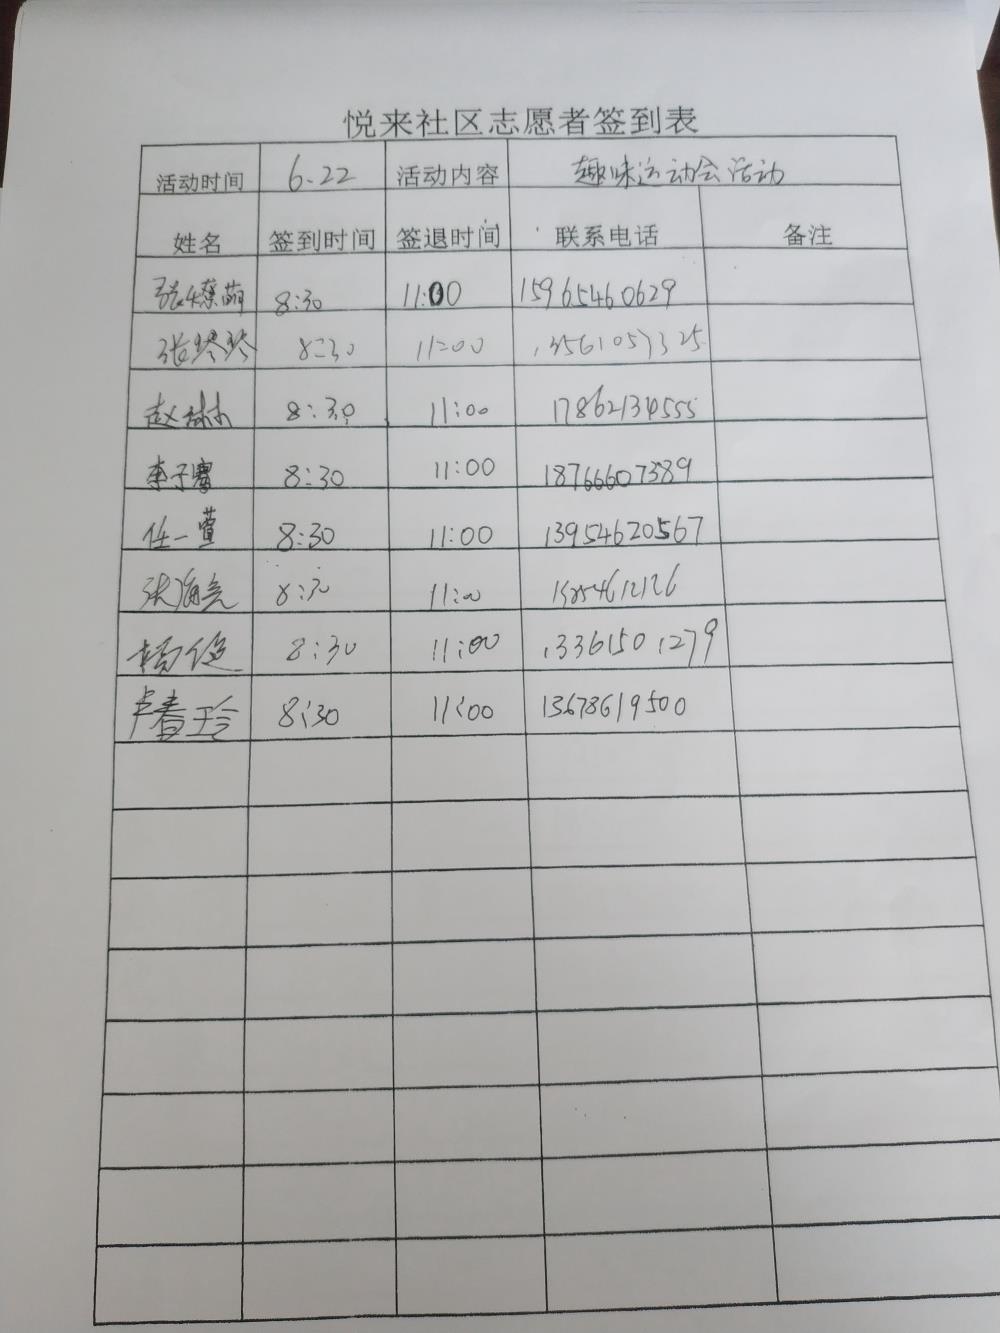 悦来社区志愿者签到表
活动时间 6.22 活动内容 趣味运动会活动
姓名 签到时间 签退时间 联系电话 备注
8:30 11:00 15965460629
张琴琴 8:30 11:00 13561057325
赵琳琳 8:30 11:00 17862134555
李子骞 8:30 11:00 18766607389
任一萱 8:30 11:00 13954620567
张海亮 8:30 11:00
杨健 8:30 11:00 13361501279
卢春玲 8:30 11:00 13678619500